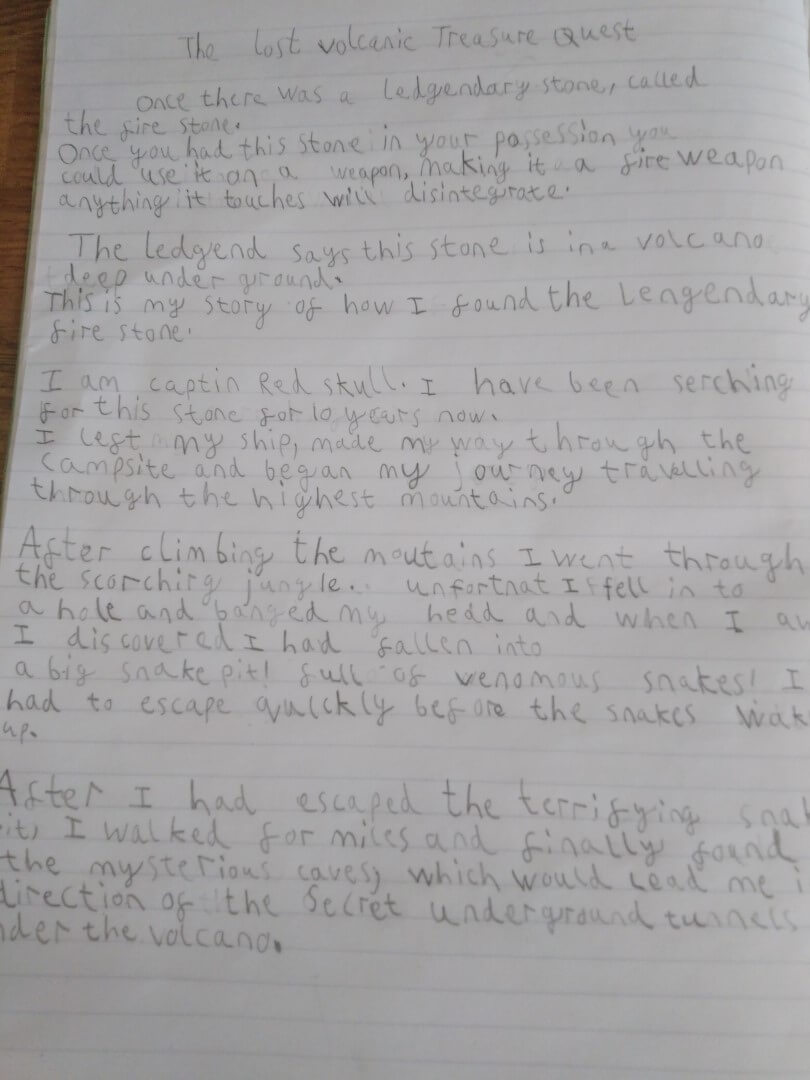 The lost volcanic Treasure Quest
Once there was a ledgendary stone, called
the fire stone.
Once you had this stone in your possession you
could use it on a weapon, making it a fire weapon
anything it touches will disintegrate.
The ledgend says this stone is in a volcano
deep under ground.
This is my story of how I found the Lengendary
fire stone.
I am captin Red skull. I have been serching
for this stone for 10 years now.
I left my ship, made my way through the
campsite and began my journey travelling
through the highest mountains.
After climbing the moutains I went through
the scorching jungle.. unfortnat I fell in to
a hole and banged my hedd and when I aw
I discovered I had fallen into
a big snake pit! full of venomous snakes! I
had to escape quickly before the snakes wak
up.
After I had escaped the terrifying snak
it, I walked for miles and finally found
the mysterious caves, which would Lead me i
direction of the Secret underground tunnels
nder the volcano.